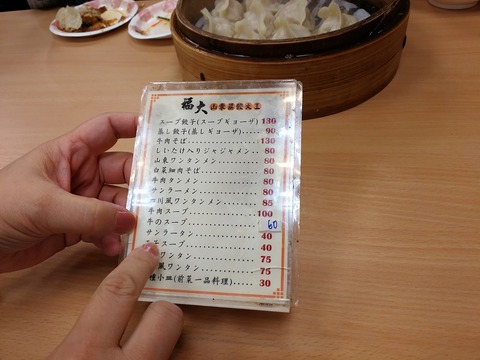 福大 山東蒸餃大王
スープ餃子(スープギョーザ) 130
蒸し餃子(蒸しギョーザ)..... 90
牛肉そば................ 130
しいたけ入りジャジャメン.. 80
山東ワンタンメン......... 80
白菜細肉そば............ 80
牛肉タンメン............ 80
サンラーメン............ 80
川風ワンタンメン......... 85
牛肉スープ............. 100
牛のスープ............. 60
サンラータン............ 40
スープ............ 40
ワンタン............ 75
風ワンタン............ 75
種小皿(前菜一品料理)..... 30